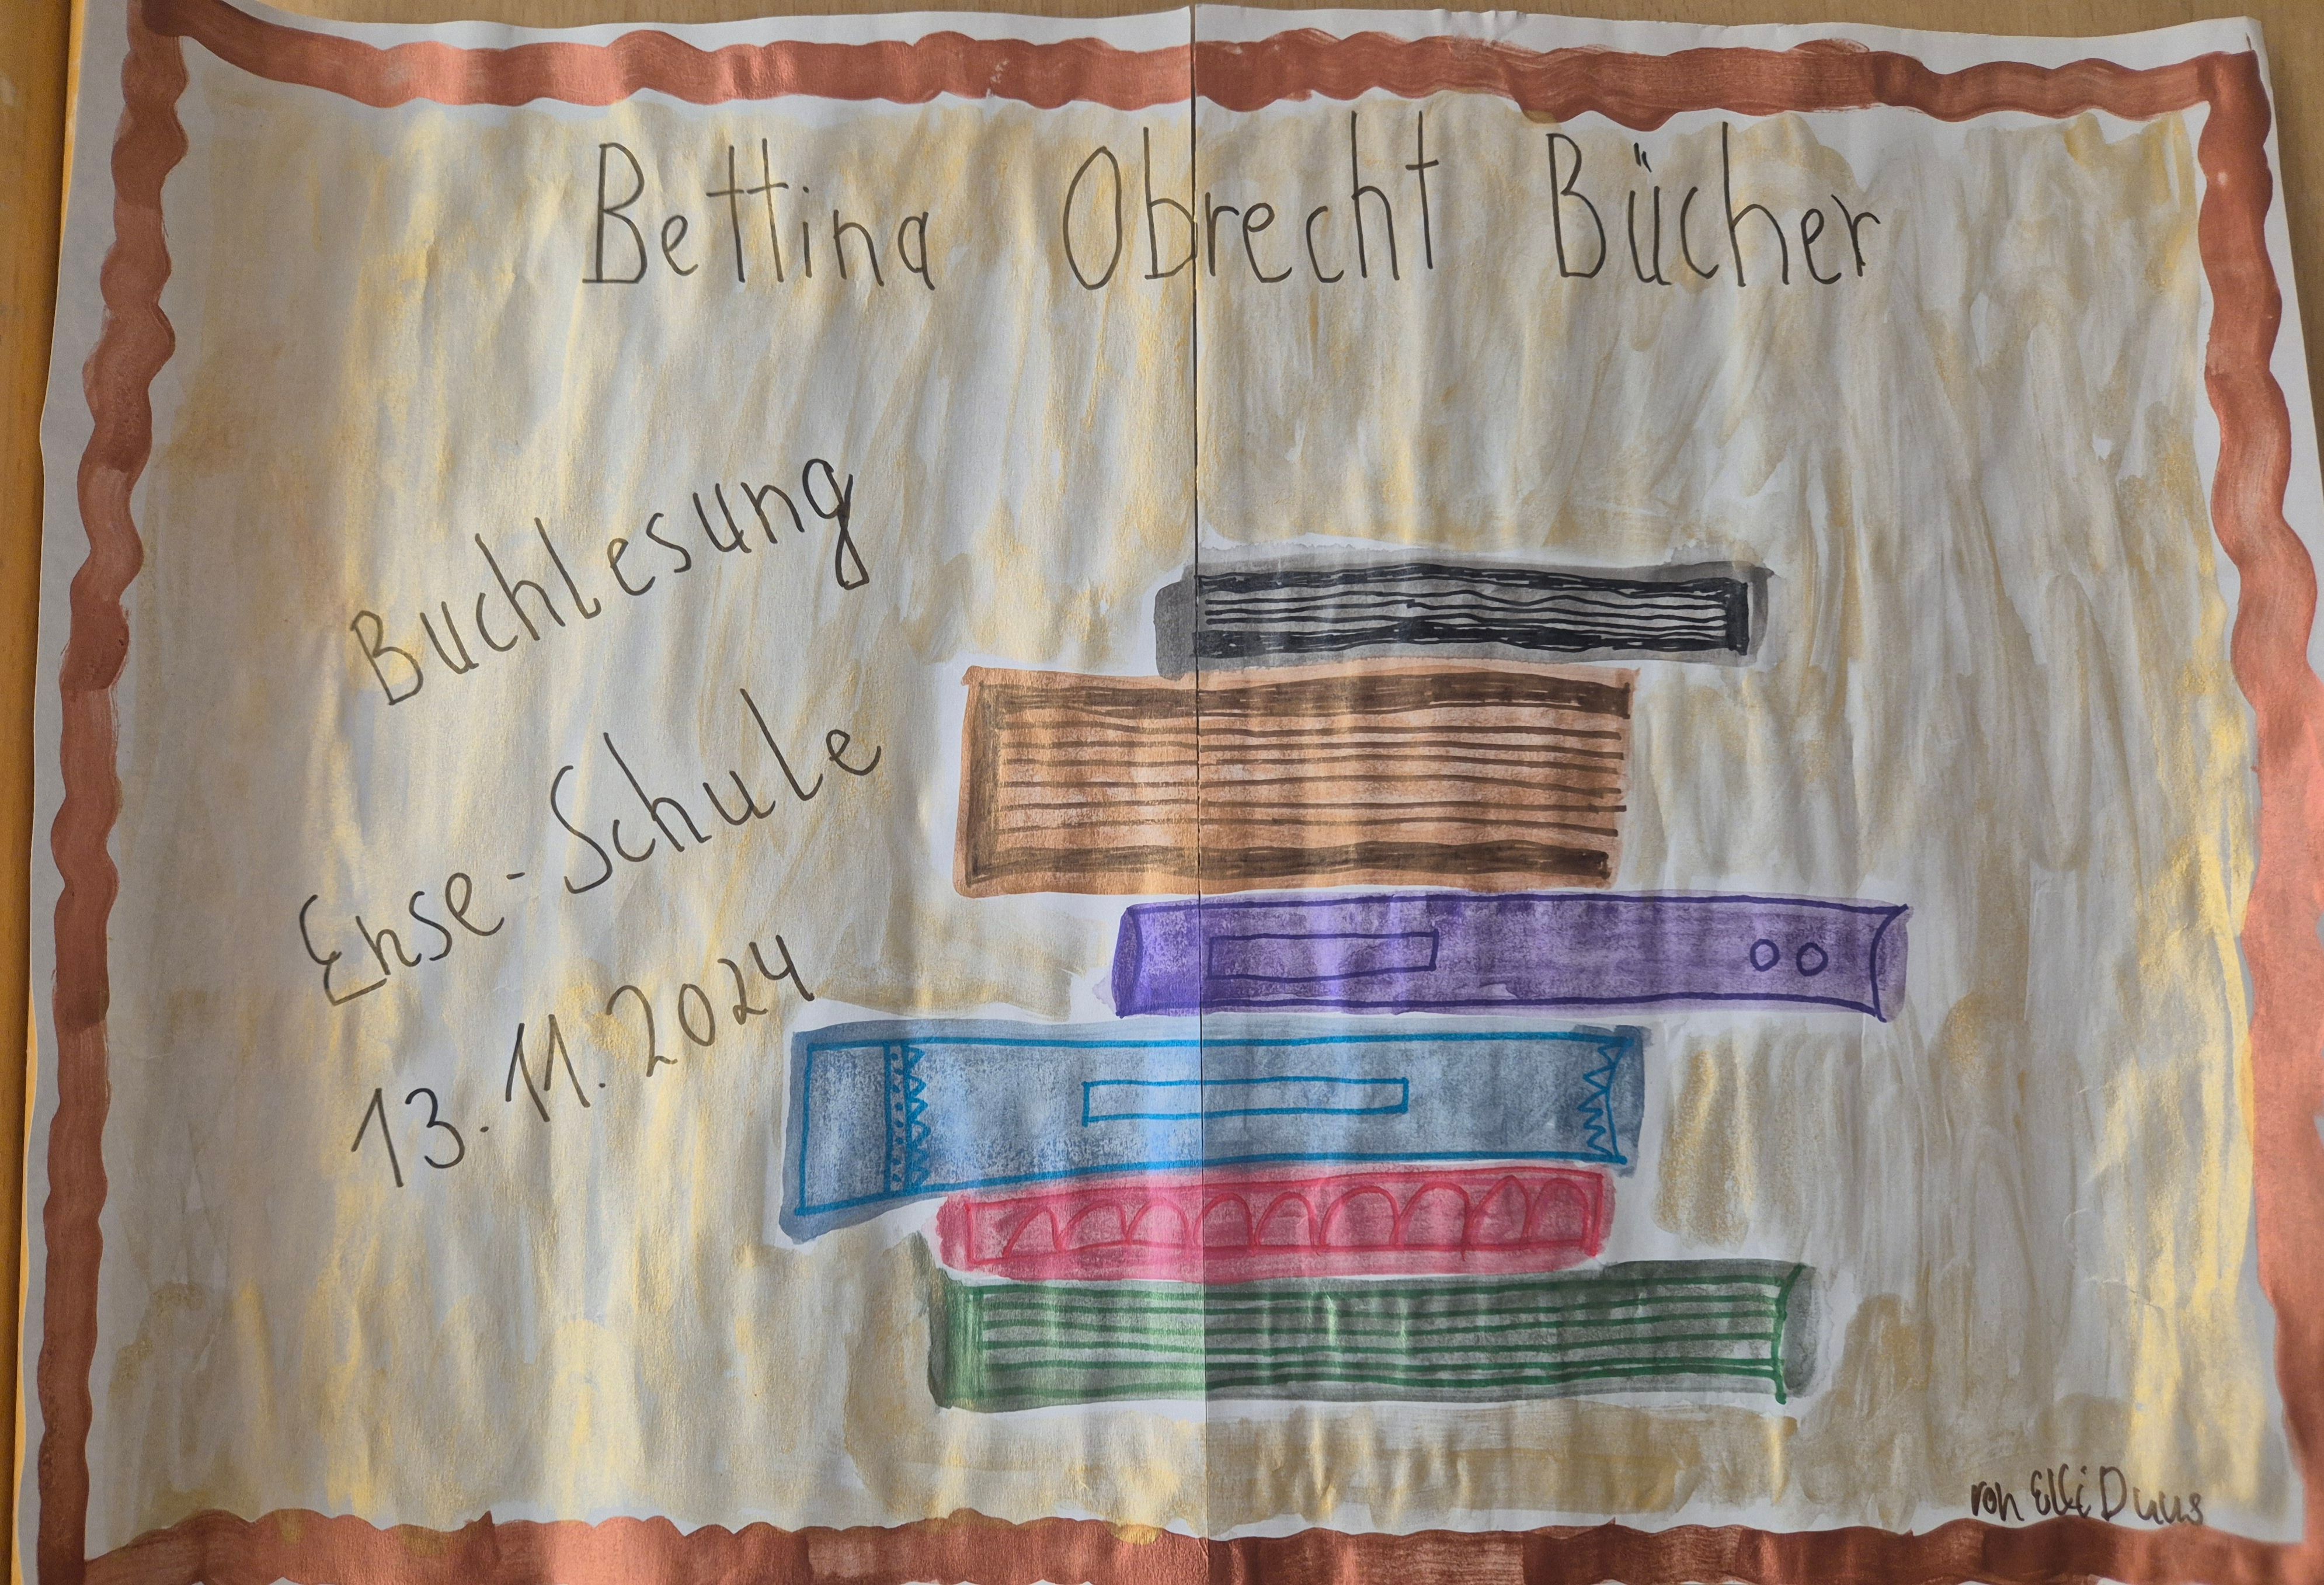 Bettina Obrecht Bücher
Buchlesung
Ense-Schule
13.11.2024
von Elli Duus